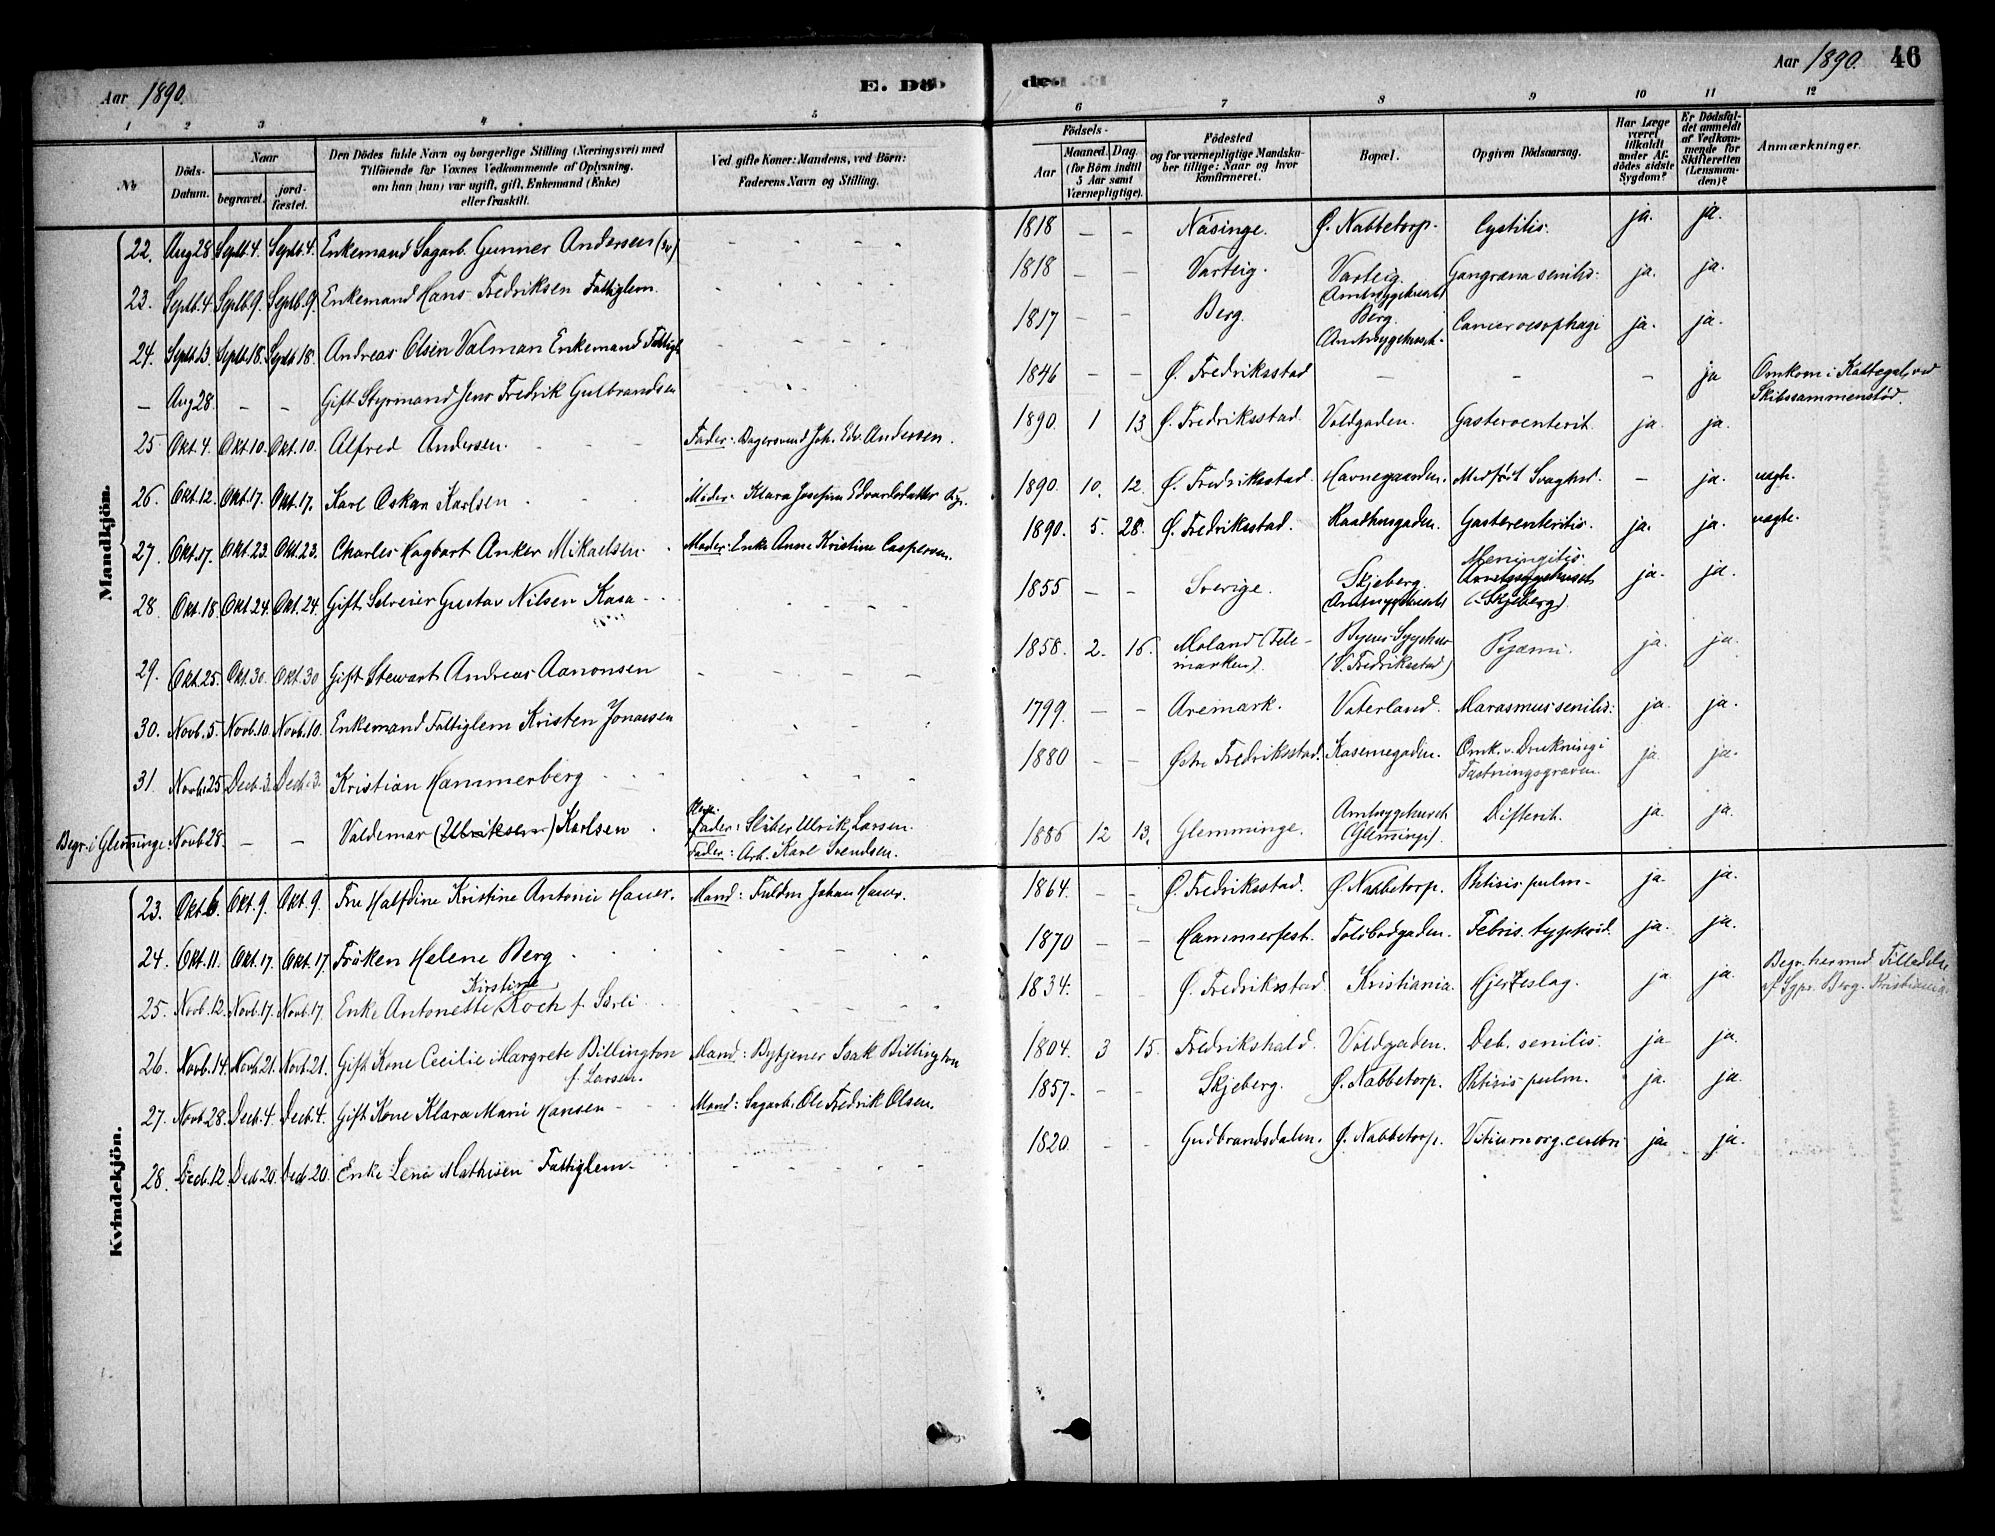 Aar 1890.
E. Dö
de.
Aar 1890. 46
1 2 3 4 5 6 7 8 9 10 11 12
No
Döds-Datum.
Naar
begravet.
jord-fæstet.
Den Dödes fulde Navn og borgerlige Stilling (Næringsvei) med
Tilföiende for Voxnes Vedkommende af Oplysning,
om han (hun) var ugift, gift, Enkemand (Enke)
eller fraskilt.
Ved gifte Koner: Mandens, ved Börn:
Faderens Navn og Stilling.
Födsels-
Aar
Maaned. Dag.
(for Börn indtil
5 Aar samt
Værnepligtige).
Födested
og for værnepligtige Mandska-
ber tillige: Naar og hvor
konfirmeret.
Bopæl.
Opgiven Dödsaarsag.
Har Læge
været
tilkaldt
under Af-
dödes sidste
Sygdom?
Er Dödsfal-
det anmeldt
af Vedkom-
mende for
Skifteretten
(Lensman-
den)?
Anmærkninger.
Mandkjön.
22. Aug 28 Septb. 4. Septb. 4. Enkemand Sagarb. Gunner Andersen - - - - 1818 - - Näsinge. Ø. Nabbetorp. Cystitis. ja. ja.
23. Septb. 4 Septb. 9. Septb. 9. Enkemand Hans Fredriksen Fattiglem. - - - - 1818 - - Varteig. Varteig. Amtssygehuset Gangræna senilis. ja. ja.
24. Septb. 13 Septb. 18. Septb. 18. Andreas Olsen Valman Enkemand Fattigl - - - - 1817 - - Berg. Berg. Amtssygehuset. Cancer oesophagi ja. ja.
- Aug 28. - - Gift Styrmand Jens Fredrik Gulbrandsen 1846 - - Ø. Fredriksstad - - - ja Omkom i Kattegat, ved
Skibssammenstöd.
25 Okt. 4. Okt. 10. Okt. 10. Alfred Andersen. Fader: Bagersvend Joh. Edv. Andersen. 1890. 1 13. Ø. Fredriksstad. Voldgaden. Gastroenterit. ja. ja.
26. Okt. 12. Okt. 17. Okt. 17. Karl Oskar Karlsen Moder: Klara Josefine Edvardsdatter 1890. 10. 12. Ø. Fredriksstad. Havnegaarden. Medfödt Svaghed. - ja. uægte.
27. Okt. 17. Okt. 23. Okt. 23. Charles Hagbart Anker Mikaelsen. Moder: Enke Anne Kristine Caspersen. 1890. 5. 28. Ø. Fredriksstad. Raadhusgaden. Gasterenteritis. ja. ja. uægte.
28. Okt. 18 Okt. 24. Okt. 24. Gift Selveier Gustav Nilsen Kasa - - - - 1855 - - Sverige. Skjeberg. Amtssygehuset Meningitis. Amtssygehuset (Skjeberg). ja. ja.
29. Okt. 25. Okt. 30. Okt. 30 Gift Stewart Andreas Aanonsen - - - - 1858. 2. 16. Moland (Tele-
marken). Byens Sygehus
(V. Fredriksstad) Pyæmi. ja. ja.
30. Novb. 5. Novb. 10. Novb. 10. Enkemand Fattiglem Kristen Jonassen 1799. - - Aremark. Vaterland. Marasmus senilis. ja. ja.
31. Novb. 25 Decb. 3. Decb. 3. Kristian Hammerberg 1880 - - Östre Fredriksstad. Kasernegaden. Omk. v. Drukning i
Fæstningsgraven. ja. ja.
Begr. i Glemminge. Novb 28. - - Valdemar (Ulriksen) Karlsen Fader: Sliber Ulrik Larsen.
Fader: Arb. Karl Svendsen. 1886 12 13. Glemminge. Amtssygehuset
(Glemminge). Difterit. ja. ja.
Kvindekjön.
23. Okt. 6. Okt. 9. Okt. 9. Fru Halfdine Kristine Antonie Hauer. Mand: Fuldm Johan Hauer. 1864. - - Ø. Fredriksstad. Ø. Nabbetorp. Phtisis pulm. ja. ja.
24. Okt. 11. Okt. 17. Okt. 17. Fröken Helene Berg 1870 - - Hammerfest. Toldbodgaden. Febris. typhoid. ja. ja.
25. Novb. 12. Novb. 17. Novb. 17. Enke Antonette Kirstine Koch f. Sørli 1834. - - Ø. Fredriksstad. Kristiania. Hjerteslag. ja ja. Begr. her med Tilladelse
af Sgpr. Berg. Kristiania.
26. Novb. 14. Novb. 21. Novb. 21. Gift Kone Cecilie Margrete Billington
f. Larsen. Mand: Bytjener Isak Billington 1804. 3 15. Fredrikshald. Voldgaden. Deb. senilis. ja ja.
27. Novb. 28. Decb. 4. Decb. 4. Gift Kone Klara Marie Hansen Mand: Sagarb. Ole Fredrik Olsen. 1857. - - Skjeberg. Ø. Nabbetorp. Phtisis pulm. ja. ja.
28. Decb. 12. Decb 20. Decb 20. Enke Lene Mathisen Fattiglem. 1820. - - Gudbrandsdalen. Ø. Nabbetorp. Vitium org. cerebri ja. ja.